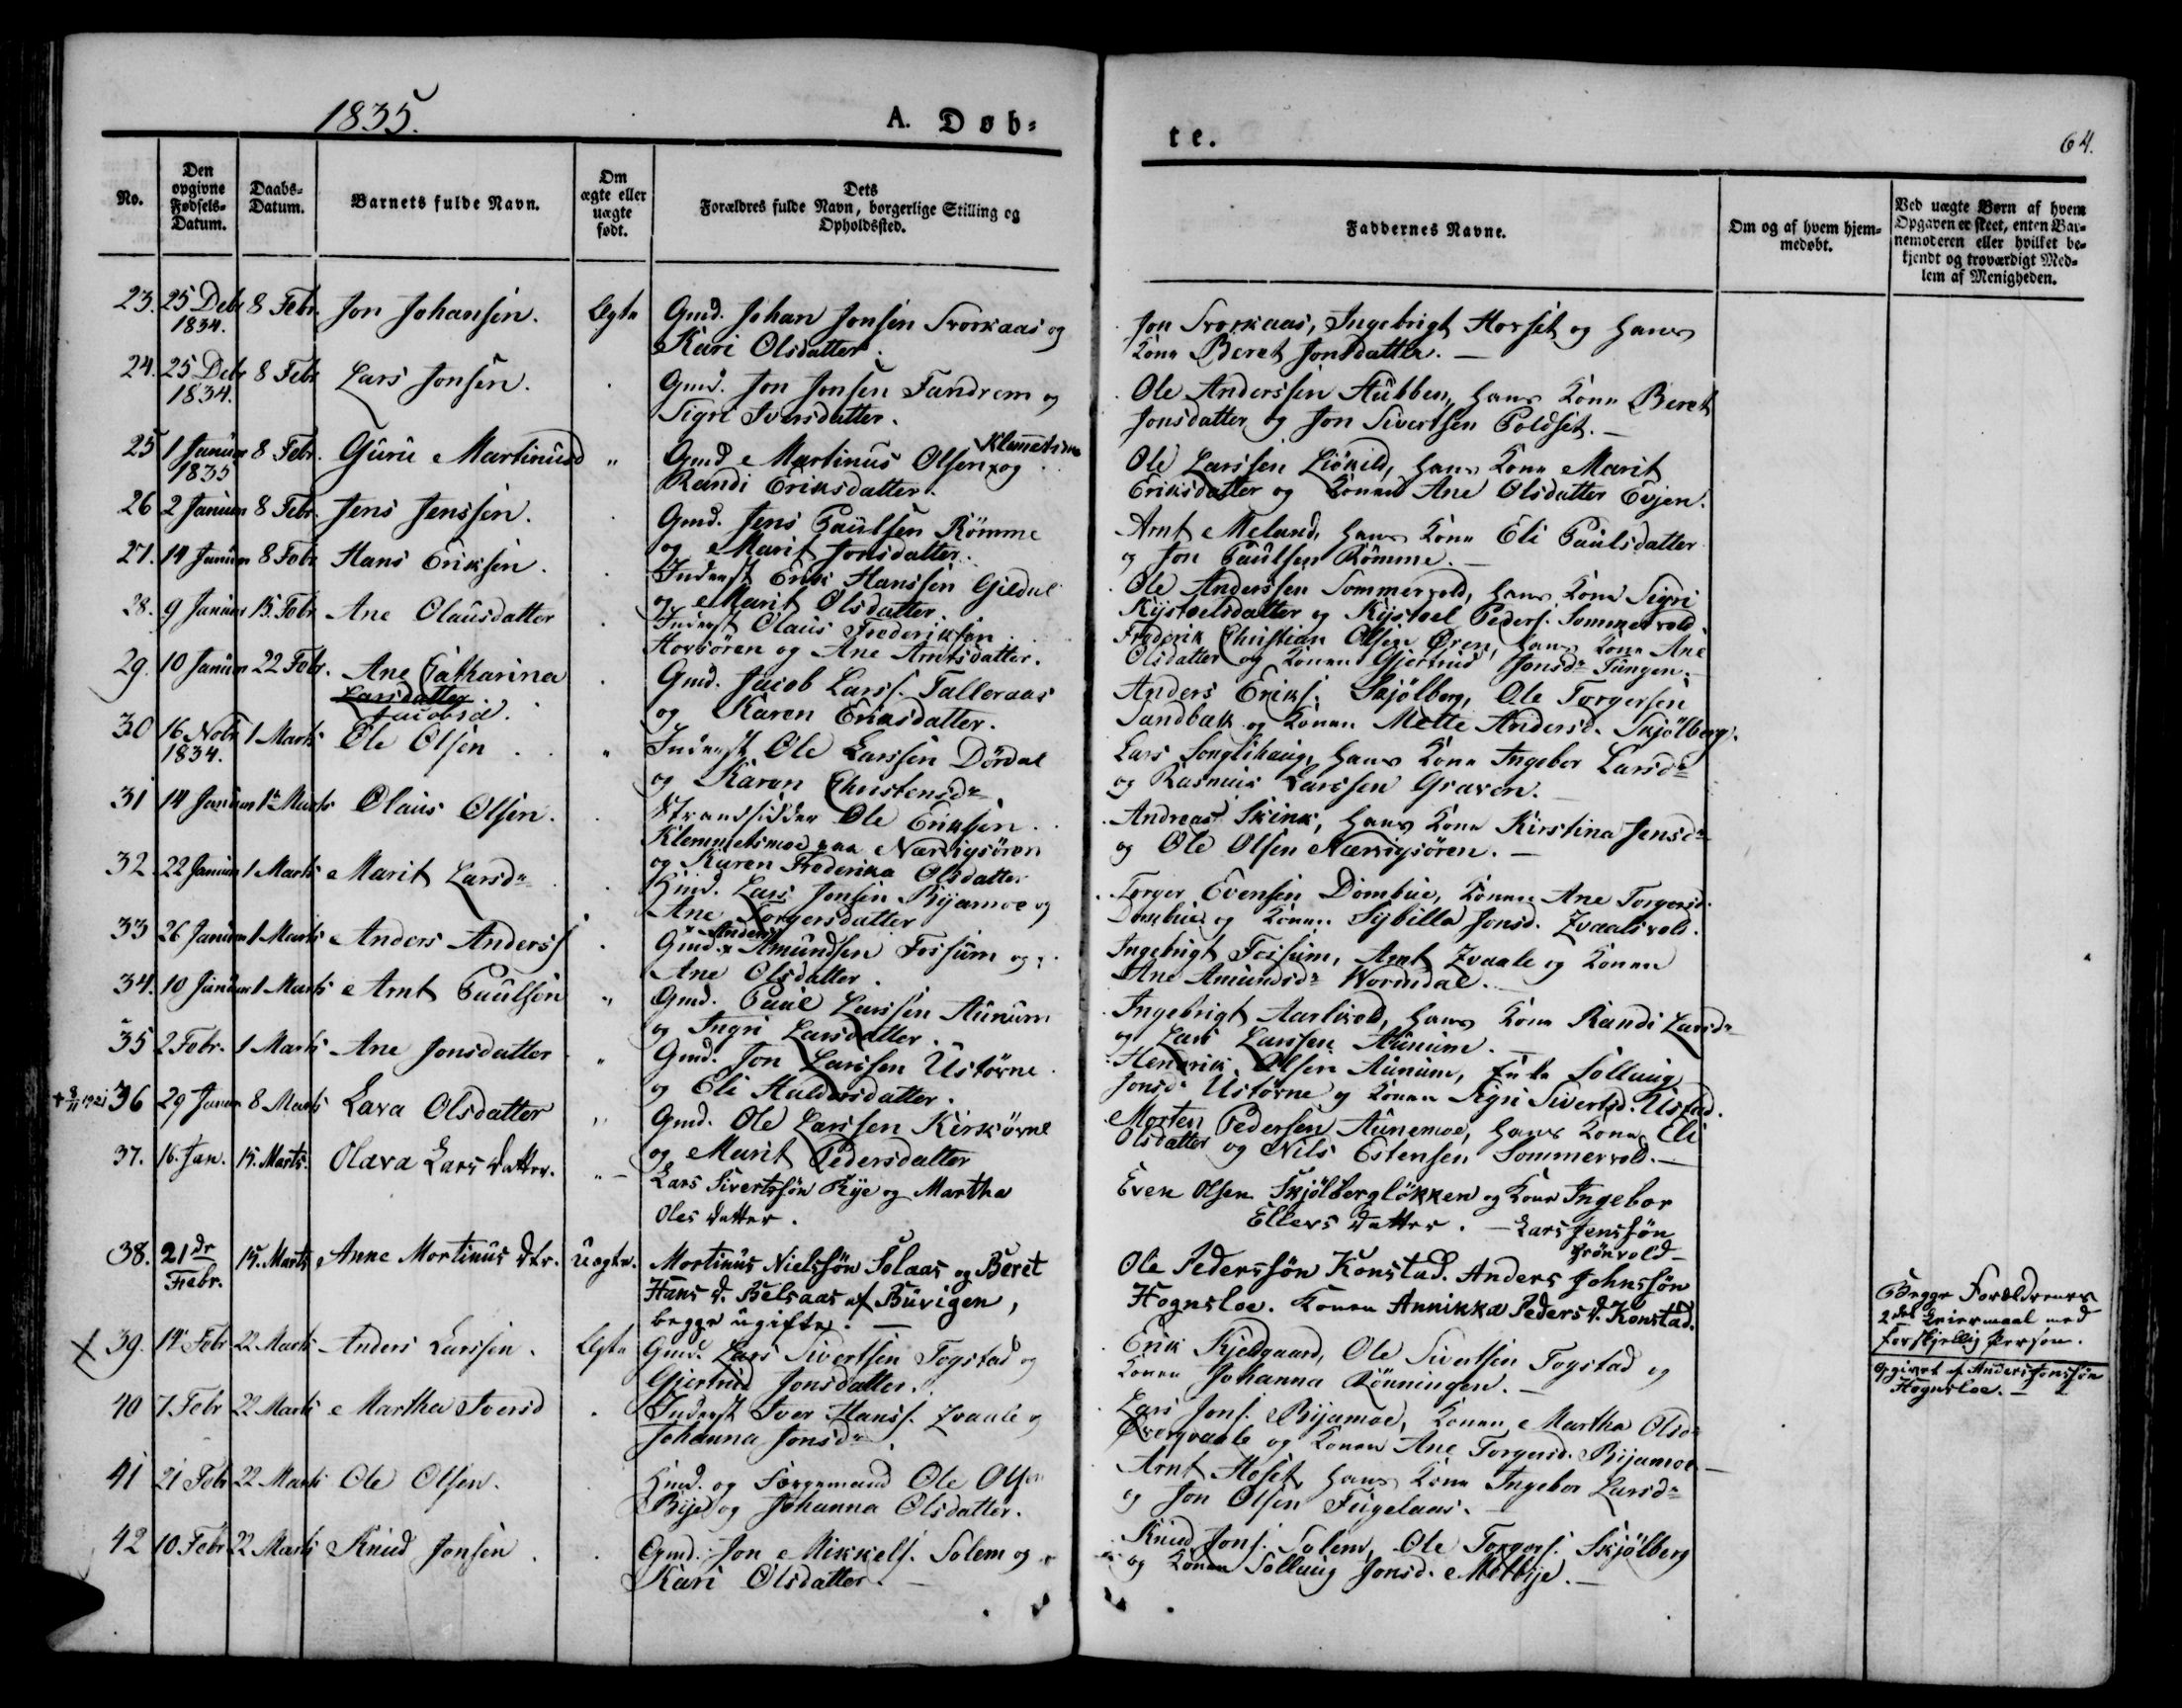 1835.
A. Døb-
te.
64.
No.
Den
opgivne
Fødsels-
Datum.
Daabs-
Datum.
Barnets fulde Navn.
Om
ægte eller
uægte
født.
Dets
Forældres fulde Navn, borgerlige Stilling og
Opholdssted.
Faddernes Navne.
Om og af hvem hjem-
medøbt.
Ved uægte Børn af hvem
Opgaven er skeet, enten Bar-
nemoderen eller hvilket be-
kjendt og troværdigt Med-
lem af Menigheden.
23. 25 Debr 8 Febr. Jon Johansen. Ægte Gmd. Johan Jonsen Svorkaas og
1834. Kari Olsdatter.
Jon Svorkaas, Ingebrigt Horset og hans
Kone Beret Jonsdatter.
24. 25 Debr 8 Febr Lars Jonsen. Gmd. Jon Jonsen Fandrem og
1834. Sigri Iversdatter.
Ole Anderssen Stubben, hans Kone Beret
Jonsdatter og Jon Sivertsen
25 1 Januar 8 Febr. Guru Martinusd " Gmd Martinus Olsen Klemetsmo og
1835 Randi Eriksdatter.
Ole Larssen hans Kone Marit
Eriksdatter og Konen Ane Olsdatter Evjen.
26 2 Januar 8 Febr. Jens Jenssen. Gmd. Jens Paulsen Römme
og Marit Jonsdatter.
Arnt Meland, hans Kone Eli Paulsdatter
og Jon Paulsen Römme.
27. 14 Januar 8 Febr Hans Eriksen. Inderst Erik Hanssen
og Marit Olsdatter.
Ole Anderssen Sommervold, hans Kone Sigri
Kystoelsdatter og Kystoel Peders. Sommervold.
28. 9 Januar 15. Febr Ane Olausdatter Inderst Olaus Frederiksen
og Ane Arntsdatter.
Frederik Christian Olsen Øren, hans Kone Ane
Olsdatter og Konen Gjertrud Jonsdr Tungen.
29. 10 Januar 22 Febr. Ane Catharina Gmd. Jacob Larss. Talleraas
Larsdatter
Jacobsd. og Karen Eriksdatter.
Anders Eriks. Skjölberg, Ole Torgersen
Sandbæk og Konen Mette Andersd. Skjölberg.
30 16 Nobr 1 Marts Ole Olsen " Inderst Ole Larssen Dördal
1834. og Karen Christensdr
Lars Songlihaug, hans Kone Ingebor Larsdr
og Rasmus Larssen Graven.
31 14 Januar 1 Marts Olaus Olsen. Strandsidder Ole Eriksen
Klemmetsmoe paa Nærvigsören
og Karen Frederika Olsdatter
Andreas Skink, hans Kone Kirstina Jensdr
og Ole Olsen Nærvigsören.
32. 22 Januar 1 Marts Marit Larsdr Huusmd. Lars Jonsen Byamoe og
Ane Torgersdatter
Torger Evensen Dombue, Konen Ane Torgersd.
Dombue og Konen Sybilla Jonsd. Zvaalivold.
33 26 Januar 1 Marts Anders Anderss Gmd. Anders Amundsen Fossum og
Ane Olsdatter
Ingebrigt Fossum, Arnt Zvaale og Konen
Ane Amundsdr Wormdal.
34. 10 Januar 1 Marts Arnt Paulsen " Gmd. Paul Larssen Aunum
og Ingri Larsdatter.
Ingebrigt hans Kone Randi Larsdr
og Lars Larssen Aunum.
35 2 Febr. 1 Marts Ane Jonsdatter " Gmd. Jon Larssen Ustörne
og Eli Haldorsdatter.
Hendrik Olsen Aunum, Enke Sollaug
Jonsdr Ustörne og Konen Sigri Sivertsd. Ustad.
36 29 Januar 8 Marts Lava Olsdatter " Gmd. Ole Larssen Kirkörne
og Marit Pedersdatter
Morten Pedersen Aunemoe, hans Kone Eli
Olsdatter og Nils Estensen Sommervold.
37. 16. Jan. 15. Marts. Olava Lars datter. " Lars Sivertsøn Rye og Martha
Oles datter.
Even Olsen Skjölberglökken og Kone Ingebor
Ellers datter. - Lars Jenssøn
Grönvold
38. 21de 15. Marts Anne Mortinus dtr. Uægte. Mortinus Nielssøn Solaas og Beret
Febr. Hans d. Belsaas af Buvigen,
begge ugifte.
Ole Pederssøn Konstad. Anders Johnssøn
Hognsloe. Konen Annikka Peders d. Konstad.
Begge Forældrenes
2det Leiermaal med
forskjellig Person.
Opgivet af Anders Jonssøn
Hognsloe.
39. 14 Febr 22 Marts Anders Larssen. Ægte Gmd. Lars Sivertsen Togstad og
Gjertrud Jonsdatter.
Erik Kjeldgaard, Ole Sivertsen Togstad og
Konen Johanna Rönningen.
40 7. Febr 22 Marts Martha Iversd Inderst Iver Hanss. Zvaale og
Johanna Jonsdr
Lars Jons. Byamoe, Konen Martha Olsdr
Øverzvaale og Konen Ane Torgersd. Byamoe
41 21 Febr 22 Marts Ole Olsen. Huusmd. og Færgemand Ole Olsen
Bye og Johanna Olsdatter.
Arnt Hoset, hans Kone Ingebor Larsdr
og Jon Olsen Fugelaas.
42 10 Febr 22 Marts Knud Jonsen. Gmd. Jon Mikkels. Solem og
Kari Olsdatter.
Knud Jons. Solem, Ole Torgers. Skjölberg
og Konen Sollaug Jonsd. Melbye.